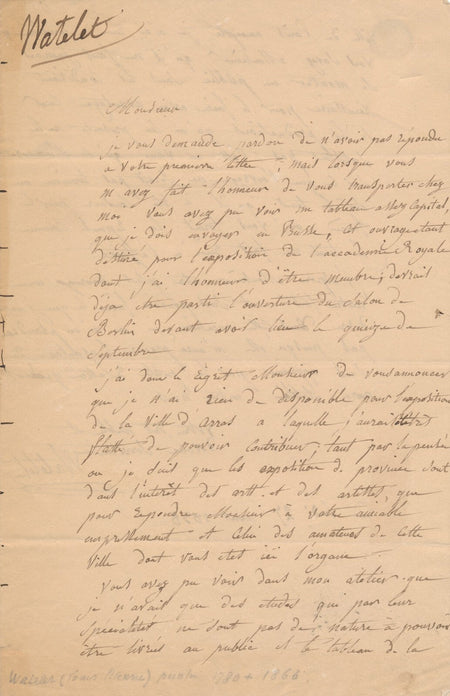 Watelet
Monsieur
je vous demande pardon de n'avoir pas répondu
a votre premiere lettre, mais lorsque vous
m avez fait l'honneur de vous transporter chez
moi vous avez pu voir un tableau assez capital,
que je dois envoyer en Prusse, cet ouvrage etant
destiné pour l'exposition de l'accademie Royale
dont j'ai l'honneur d'être membre, devrait
déja etre parti l'ouverture du Salon de
Berlin devant avoir lieu le quinze de
Septembre
j'ai donc le regret Monsieur de vous annoncer
que je n'ai rien de disponible pour l'exposition
de la Ville d'arras a laquelle j'aurai été
flatté de pouvoir contribuer tant par la pensée
ou je suis que les exposition de province sont
dans l'interêt des arts et des artistes, que
pour repondre Monsieur à votre aimable
empressement et celui des amateurs de cette
Ville dont vous etes ici l'organe
vous avez pu voir dans mon atelier que
je n'avais que des etudes qui par leur
specialités ne sont pas de nature à pouvoir
être livrés au public et le tableau de la
Watelet (Louis Etienne) peintre 1780 + 1866